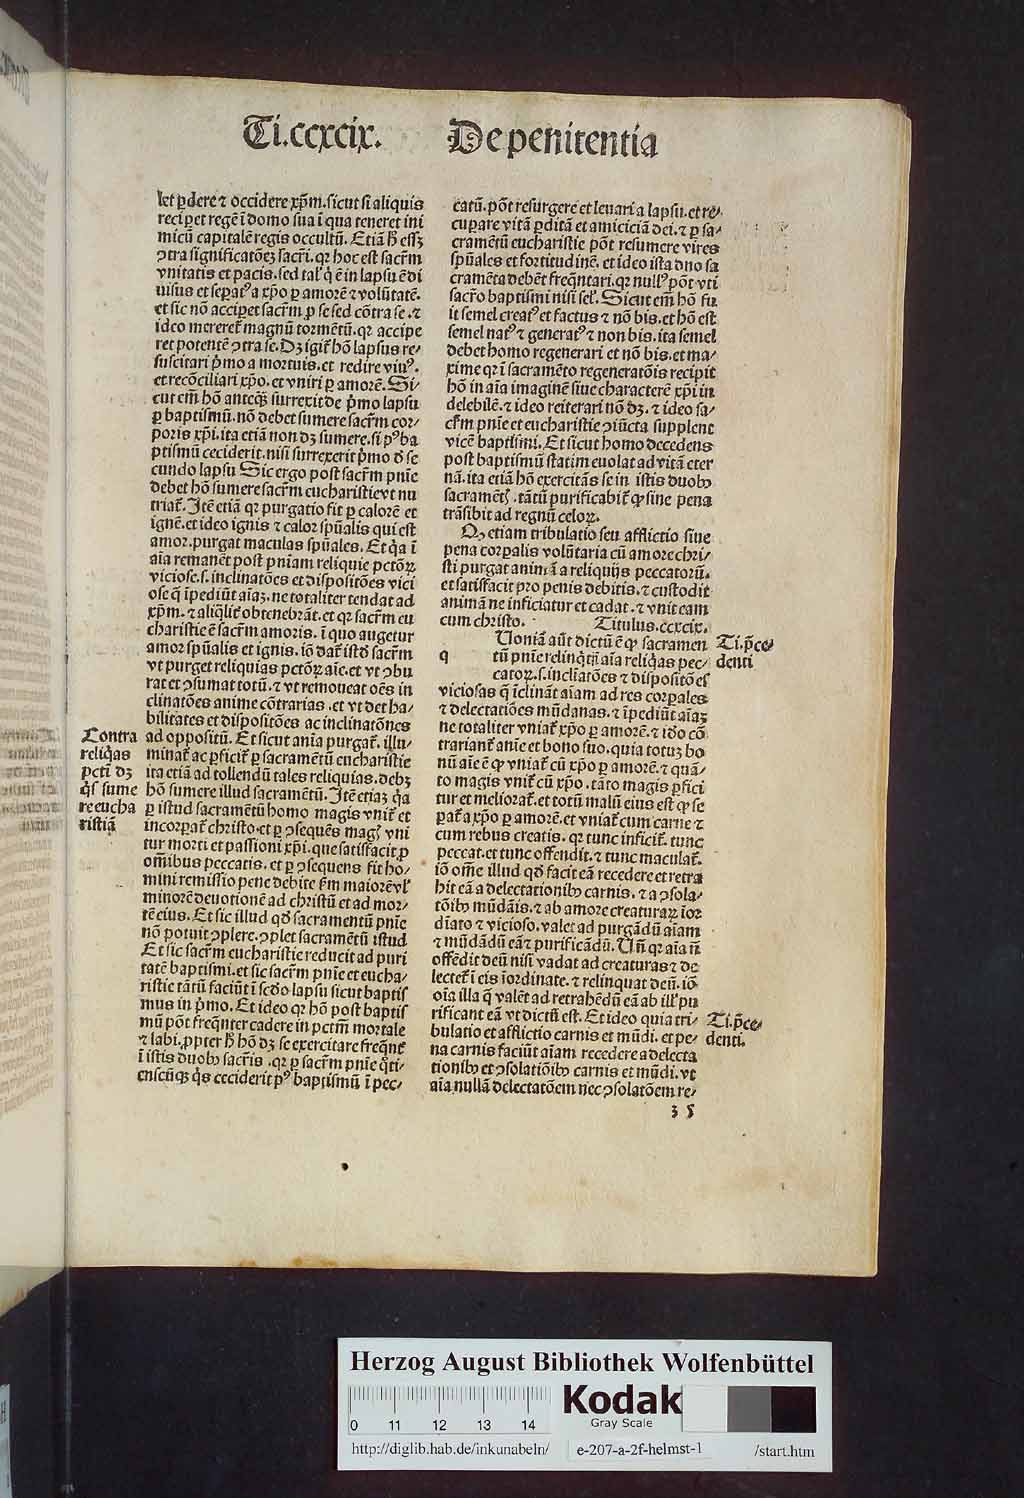 Ti.ccxcix. De penitentia
let ꝑdere ⁊ occidere xp̄m. sicut si aliquis
reciperet regē ī domo sua ī qua teneret ini
micū capitalē regis occultū. Etiā h̄ eſſꝫ
ꝯtra significatōeꝫ sacrī. qꝛ hoc est sacrm̄
vnitatis et pacis. sed tal' q̄ ē in lapsu ē di
uisus et seꝑatꝰ a xp̄o ꝑ amorē ⁊ volūtatē.
et sic nō acciperet sacrm̄ ꝓ se sed cōtra se. ⁊
ideo mereret̄ magnū tormētū. qꝛ accipe
ret potentē ꝯtra se. Dꝫ igit̄ hō lapsus re/
suscitari p̄mo a mortuis. et redire viuꝰ.
et recōciliari xp̄o. et vniri ꝑ amorē. Si/
cut em̄ hō anteq̄ꝫ surrexit de p̄mo lapsu
ꝑ baptismū. nō debet sumere sacrm̄ cor/
poris xp̄i. ita etiā non dꝫ sumere. si pꝰ ba
ptismū ceciderit. nisi surrexerit p̄mo d̄ se
cundo lapsu Sic ergo post sacrm̄ pnīe
debet hō sumere sacrm̄ eucharistie vt nu
triat̄. Itē etiā qꝛ purgatio fit ꝑ calorē et
ignē. et ideo ignis ⁊ calor spūalis qui est
amor. purgat maculas spūales. Et q̄a ī
aīa remanēt post pnīam reliquie pctōꝝ
viciose. s. inclinatōes et dispositōes vici
ose q̄ īpediūt aīaꝫ. ne totaliter tendat ad
xp̄m. ⁊ aliq̄lit̄ obtenebrāt. et qꝛ sacrm̄ eu
charistie ē sacrm̄ amoris. ī quo augetur
amor spūalis et ignis. iō dat̄ istd̄ sacrm̄
vt purget reliquias pctōꝝ aīe. et vt ꝯbu
rat et ꝯsumat totū. ⁊ vt remoueat oēs in
clinatōes anime cōtrarias. et vt det ha/
bilitates et dispositōes ac inclinatōnes
ad oppositū. Et sicut anīa purgat̄. illu/
minat̄ ac ꝑficit̄ ꝑ sacramētū eucharistie
ita etiā ad tollendū tales reliquias. debꝫ
hō sumere illud sacramētū. Itē etiaꝫ q̄a
ꝑ istud sacramētū homo magis vnit̄ et
incorꝑat̄ christo. et ꝑ ꝯsequēs magꝭ vni
tur morti et passioni xp̄i. que satisfacit ꝓ
om̄ibus peccatis. et ꝑ ꝯsequens fit ho/
mini remissio pene debite km̄ maiorē vl'
minorē deuotionē ad christū et ad mor/
tē eius. Et sic illud qd̄ sacramentū pnīe
nō potuit ꝯplere. ꝯplet sacramētū istud
Et sic sacrm̄ eucharistie reducit ad puri
tatē baptismi. et sic sacrm̄ pnīe et eucha/
ristie tātū faciūt ī scd̄o lapsu sicut baptis
mus in p̄mo. Et ideo qꝛ hō post baptis
mū pōt freq̄nter cadere in pctm̄ mortale
⁊ labi. ꝓpter h̄ hō dꝫ se exercitare freq̄nt̄
ī istis duobꝰ sacrīs. qꝛ ꝑ sacrm̄ pnīe q̄ti/
enscūqꝫ q̄s ceciderit pꝰ baptismū ī pec/
Contra
reliq̄as
pctī dꝫ
q̄s sume
re eucha
ristiā
catū. pōt resurgere et leuari a lapsu. et re/
cuꝑare vitā ꝑditā et amiciciā dei. ⁊ ꝑ sa/
cramētū eucharistie pōt resumere vires
spūales et fortitudinē. et ideo ista duo sa
cramēta debēt freq̄ntari. qꝛ nullꝰ pōt vti
sacrō baptismi nisi sel'. Sicut em̄ hō fu
it semel creatꝰ et factus ⁊ nō bis. et hō est
semel natꝰ ⁊ generatꝰ ⁊ non bis. ita semel
debet homo regenerari et nō bis. et ma/
xime qꝛ ī sacramēto regeneratōis recipit
hō in aīa imaginē siue characterē xp̄i in
delebilē. ⁊ ideo reiterari nō dꝫ. ⁊ ideo sa/
crm̄ pnīe et eucharistie ꝯiūcta supplent
vicē baptismi. Et sicut homo decedens
post baptismū statim euolat ad vitā eter
nā. ita etiā hō exercitās se in istis duobꝰ
sacramētꝭ. tātū purificabit̄ ꝙ sine pena
trāsibit ad regnū celoꝝ.
Qꝫ etiam tribulatio seu afflictio siue
pena corꝑalis volūtaria cū amore chri/
sti purgat animā a reliquijs peccatorū.
et satisfacit pro penis debitis. ⁊ custodit
animā ne inficiatur et cadat. ⁊ vnit eam
cum christo. Titulus. ccxcix.
q Uoniā aūt dictū ē ꝙ sacramen
tū pnīe relinq̄t ī aīa reliq̄as pec/
catoꝝ. s. inclīatōes ⁊ dispositōes
viciosas q̄ īclināt aīam ad res corꝑales
⁊ delectatiōes mūdanas. ⁊ īpediūt aīaꝫ
ne totaliter vniat̄ xp̄o ꝑ amorē. ⁊ iđo cō
trariant̄ anīe et bono suo. quia totuꝫ bo
nū aīe ē ꝙ vniat̄ cū xp̄o ꝑ amorē. ⁊ quā/
to magis vnit̄ cū xp̄o. tāto magis ꝑfici
tur et meliorat̄. et totū malū eius est ꝙ se
ꝑat̄ a xp̄o ꝑ amorē. et vniat̄ cum carne ⁊
cum rebus creatis. qꝛ tunc inficit̄. tunc
peccat. et tunc offendit. ⁊ tunc maculat̄.
iō om̄e illud qd̄ facit eā recedere et retra
hit eā a delectationibꝰ carnis. ⁊ a ꝯsola/
tōibꝰ mūdāis. ⁊ ab amore creaturaꝝ īor
dīato ⁊ vicioso. valet ad purgādū aīam
⁊ mūdādū eā ⁊ purificādū. Un̄ qꝛ aīa n̄
offēdit deū nisi vadat ad creaturas ⁊ de
lectet̄ ī eis īordinate. ⁊ relinquat deū. iō
oīa illa q̄ valēt ad retrahēdū eā ab ill' pu
rificant eā vt dictū est. Et ideo quia tri/
bulatio et afflictio carnis et mūdi. et pe/
na carnis faciūt aīam recedere a delecta
tionibꝰ et ꝯsolatiōibꝰ carnis et mūdi. vt
aīa nullā delectatōem nec ꝯsolatōem re/
Ti. p̄ce/
denti
Ti. p̄ce/
denti.
ꝫ 5
Herzog August Bibliothek Wolfenbüttel
0 11 12 13 14
Kodak
Gray Scale
http://diglib.hab.de/inkunabeln/ e-207-a-2f-helmst-1 /start.htm